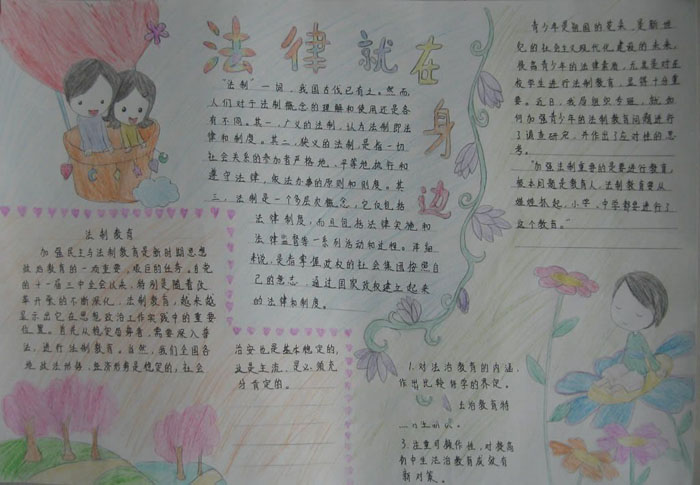 法律就在身边
"法制"一词，我国古代已有之。然而，
人们对于法制概念的理解和使用还是各
有不同。其一，广义的法制，认为法制即法
律和制度。其二，狭义的法制，是指一切
社会关系的参加者严格地、平等地执行和
遵守法律，依法办事的原则和制度。其
三，法制是一个多层次概念，它不仅包括
法律制度，而且包括法律实施和
法律监督等一系列活动和过程。详细
来说，是指掌握政权的社会集团按照自
己的意志，通过国家政权建立起来
的法律和制度。
法制教育
加强民主与法制教育是新时期思想
政治教育的一项重要、艰巨的任务。自党
的十一届三中全会以来，特别是随着改
革开放的不断深化，法制教育，越来越
显示出它在思想政治工作实践中的重要
位置。首先从稳定局势看，需要深入普
法，进行法制教育。当然，我们全国各
地政治形势、经济形势是稳定的，社会
治安也是基本稳定的，
这是主流，是必须充
分肯定的。
青少年是祖国的花朵，是新世
纪的社会主义现代化建设的未来，
提高青少年的法律素质，尤其是对在
校学生进行法制教育，显得十分重
要。近日，我局组织专班，就如
何加强青少年的法制教育问题进行
了调查研究，并作出了应对性的思
考。
"加强法制重要的是要进行教育，
根本问题是教育人。法制教育要从
娃娃抓起，小学、中学都要进行
这个教育。"
1.对法治教育的内涵
作出比较科学的界定。
法治教育特
3.注重可操作性，对提高
初中生法治教育成效有
期对策。